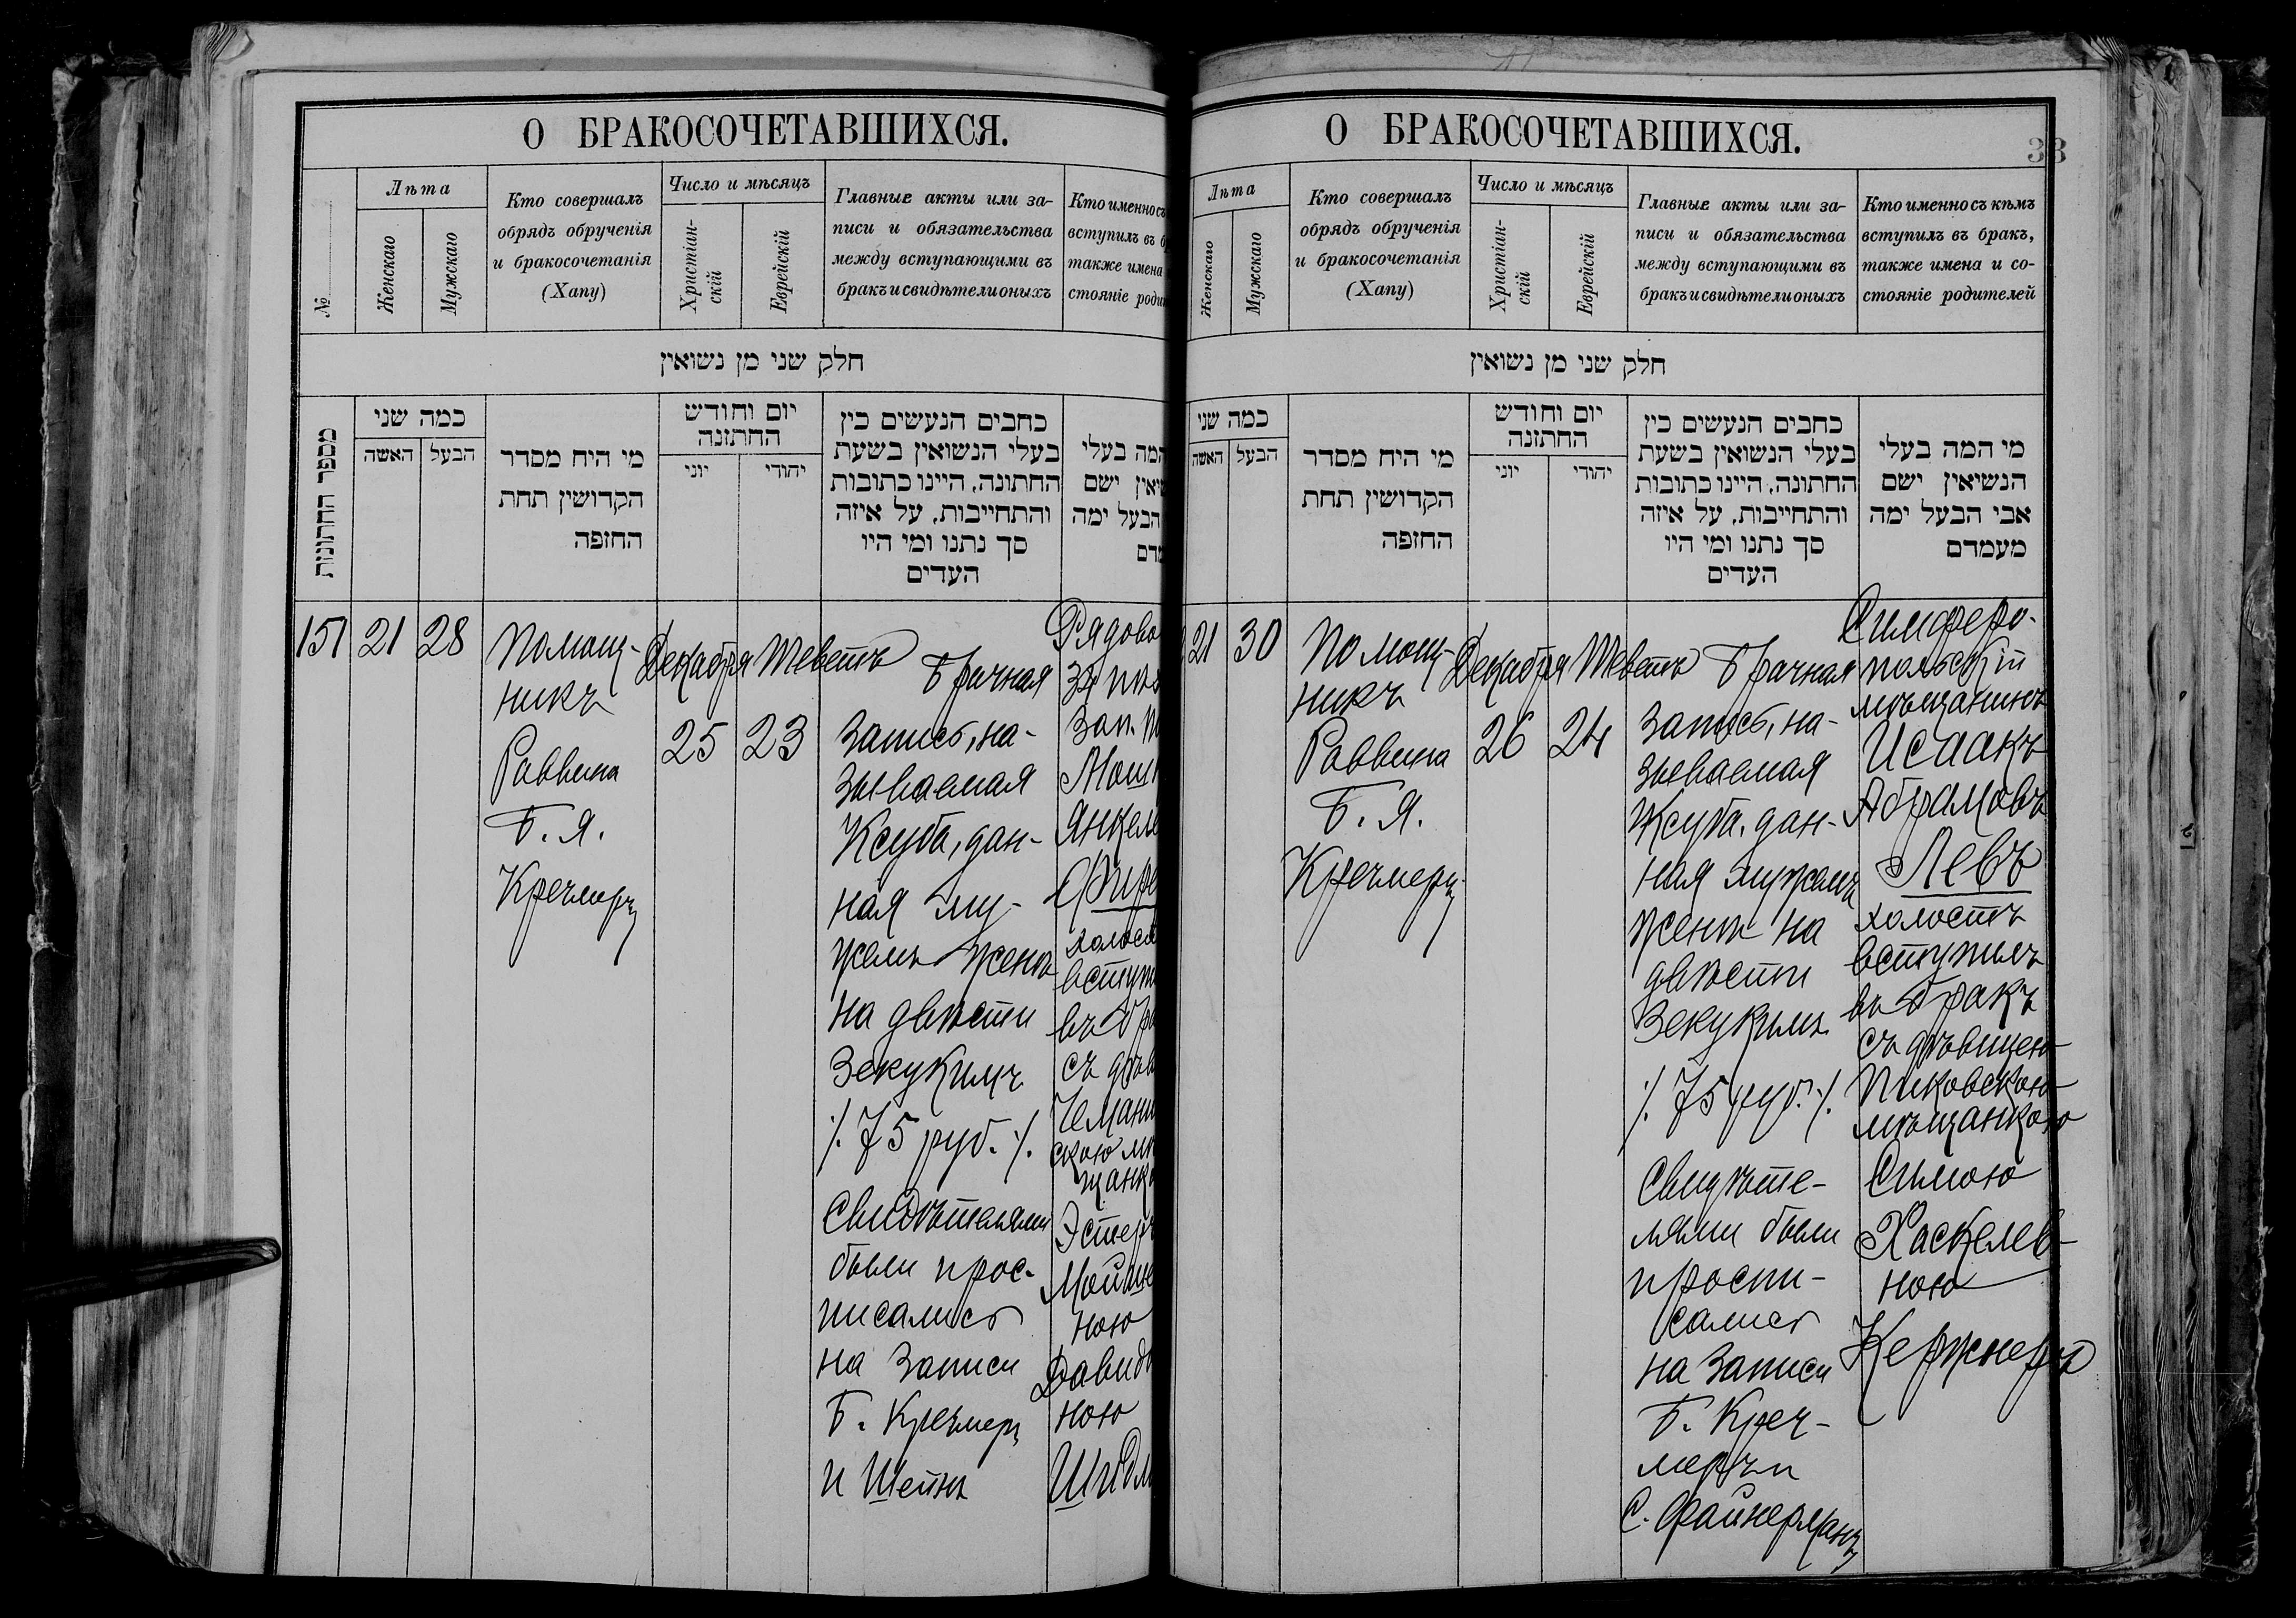 О БРАКОСОЧЕТАВШИХСЯ.
№
Лѣта
Женскаго
Мужскаго
Кто совершалъ
обрядъ обрученія
и бракосочетанія
(Хапу)
Число и мѣсяцъ
Христіан-
скій
Еврейскій
Главные акты или за-
писи и обязательства
между вступающими въ
бракъ и свидѣтели оныхъ
Кто именно съ
вступилъ въ б
также имена
стояніе роди
חלק שני מן נשואין
מספר החתונות
כמה שני
האשה
הבעל
מי היח מסדר
הקדושין תחת
החזפה
יום וחודש
החתזנה
יוני
יהודי
כחבים הנעשים כין
בעלי הנשואין בשעת
החתונה, היינו כתובות
והתחייבות, על איזה
סך נתנו ומי היו
העדים
המה בעלי
שיאין ישם
הבעל ימה
מדם
151
21
28
Помощ-
никъ
Раввина
Б. Я.
Кречмеръ
Декабря
25
Теветъ
23
Брачная
Запись, на-
зываемая
Ксуба, дан-
ная му-
жемъ женѣ
на двѣсти
Зекукимъ
/. 75 руб. /.
Свидѣтелями
были и рос-
писались
на Записи
Б. Кречмеръ
и Шейнъ
Рядово
34
Зап.
Мош
Янкеле
Фире
холост
вступи
въ бра
съ дѣв
скою мѣ
щанк
Эстеръ
Мойше
ною
Давидо
ною
О БРАКОСОЧЕТАВШИХСЯ.
33
Лѣта
Женскаго
Мужскаго
Кто совершалъ
обрядъ обрученія
и бракосочетанія
(Хапу)
Число и мѣсяцъ
Христіан-
скій
Еврейскій
Главные акты или за-
писи и обязательства
между вступающими въ
бракъ и свидѣтели оныхъ
Кто именно съ кѣмъ
вступилъ въ бракъ,
также имена и со-
стояніе родителей
חלק שני מן נשואין
כמה שני
האשה
הבעל
מי היח מסדר
הקדושין תחת
החזפה
יום וחודש
החתזנה
יוני
יהודי
כחבים הנעשים כין
בעלי הנשואין בשעת
החתונה, היינו כתובות
והתחייבות, על איזה
סך נתנו ומי היו
העדים
מי המה בעלי
הנשיאין ישם
אבי הבעל ימה
מעמדם
21
30
Помощ-
никъ
Раввина
Б. Я.
Кречмеръ
Декабря
26
Теветъ
24
Брачная
Запись, на-
зываемая
Ксуба, дан-
ная мужемъ
женѣ на
двѣсти
Зекукимъ
/. 75 руб. /.
Свидѣте-
лями были
и роспи-
сались
на Записи
Б. Креч-
меръ и
С. Файнерманъ
Симферо-
польскій
мѣщанинъ
Исаакъ
Абрамовъ
Левъ
холостъ
вступилъ
въ бракъ
съ дѣвицею
Пиковскою
мѣщанкою
Симою
Хаскелев-
ною
Кержнеръ